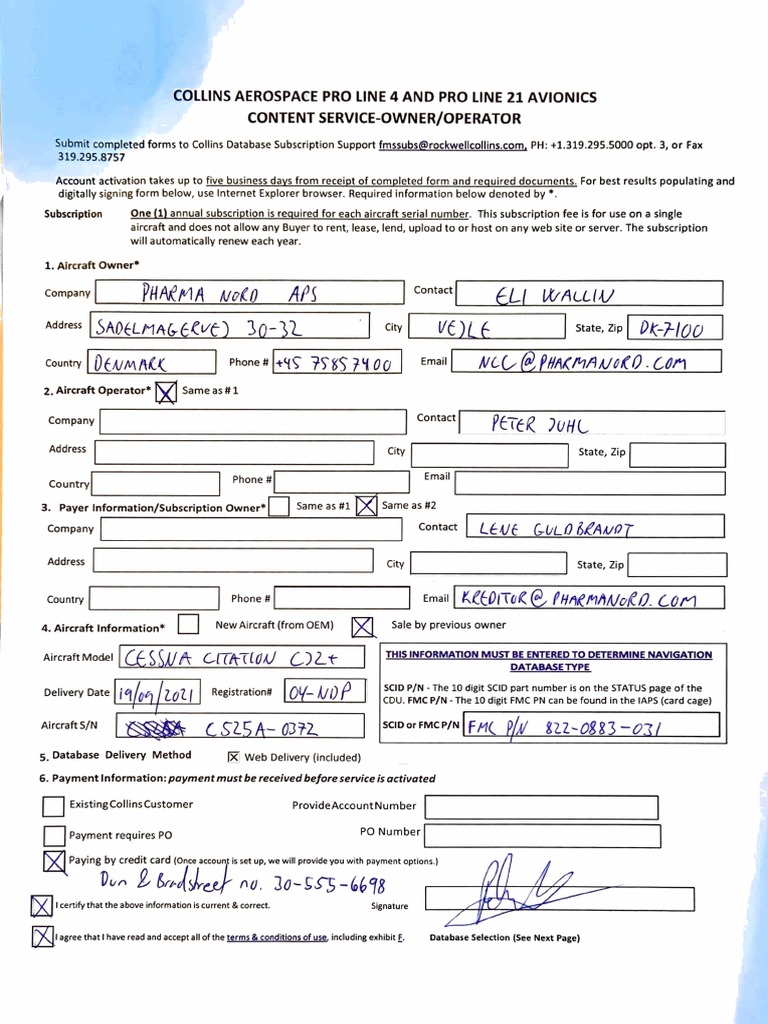 COLLINS AEROSPACE PRO LINE 4 AND PRO LINE 21 AVIONICS
CONTENT SERVICE-OWNER/OPERATOR
Submit completed forms to Collins Database Subscription Support fmssubs@rockwellcollins.com, PH: +1.319.295.5000 opt. 3, or Fax
319.295.8757
Account activation takes up to five business days from receipt of completed form and required documents. For best results populating and
digitally signing form below, use Internet Explorer browser. Required information below denoted by *.
Subscription One (1) annual subscription is required for each aircraft serial number. This subscription fee is for use on a single
aircraft and does not allow any Buyer to rent, lease, lend, upload to or host on any web site or server. The subscription
will automatically renew each year.
1. Aircraft Owner*
Company PHARMA NORD APS Contact ELI WALLIN
Address SADELMAGERVEJ 30-32 City VEJLE State, Zip DK-7100
Country DENMARK Phone # +45 75857400 Email NCC@PHARMANORD.COM
2. Aircraft Operator* Same as #1
Company Contact PETER JUHL
Address City State, Zip
Country Phone # Email
3. Payer Information/Subscription Owner* Same as #1 Same as #2
Company Contact LENE GULDBRANDT
Address City State, Zip
Country Phone # Email KREDITOR@PHARMANORD.COM
4. Aircraft Information* New Aircraft (from OEM) Sale by previous owner
Aircraft Model CESSNA CITATION CJ2+
THIS INFORMATION MUST BE ENTERED TO DETERMINE NAVIGATION
DATABASE TYPE
Delivery Date 19/09/2021 Registration# OY-NDP
SCID P/N - The 10 digit SCID part number is on the STATUS page of the
CDU. FMC P/N - The 10 digit FMC PN can be found in the IAPS (card cage)
Aircraft S/N C525A-0372
SCID or FMC P/N FMC P/N 822-0883-031
5. Database Delivery Method Web Delivery (included)
6. Payment Information: payment must be received before service is activated
Existing Collins Customer Provide Account Number
Payment requires PO PO Number
Paying by credit card (Once account is set up, we will provide you with payment options.)
Dun & Bradstreet no. 30-555-6698
I certify that the above information is current & correct. Signature
I agree that I have read and accept all of the terms & conditions of use, including exhibit F. Database Selection (See Next Page)